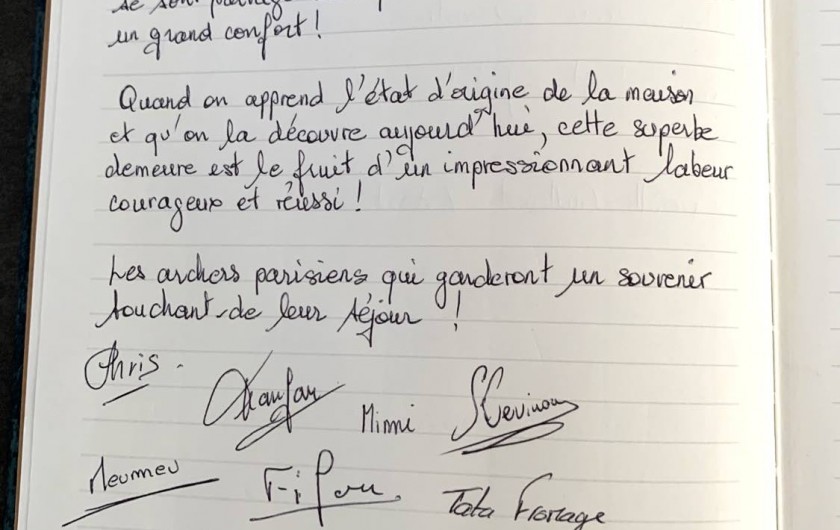 de son
un grand confort !
Quand on apprend l'état d'origine de la maison
et qu'on la découvre aujourd'hui, cette superbe
demeure est le fruit d'un impressionnant labeur
courageux et réussi !
Les archers parisiens qui garderont un souvenir
touchant de leur séjour !
Chris.
Mimi
Meumeu
Tata Fromage